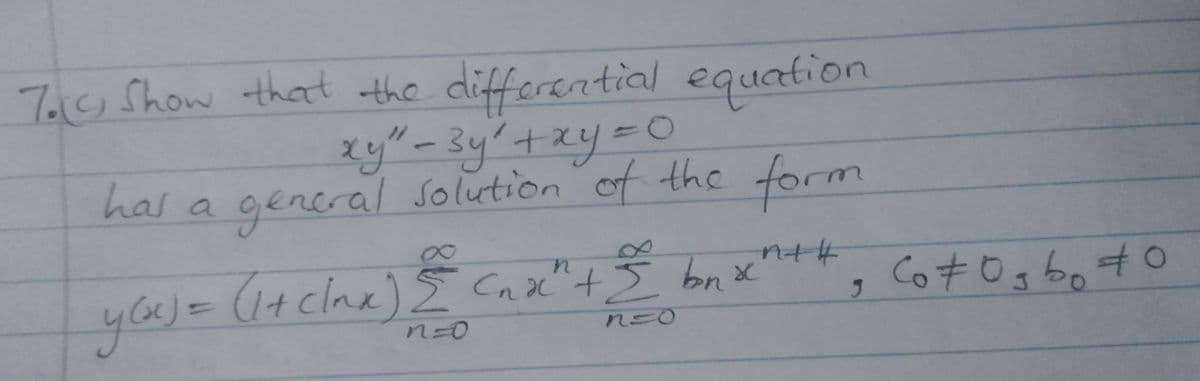 7.(c) Show that the differential equation
xy'' - 3y' + xy = 0
has a general solution of the form
y(x) = (1 + c ln x) ∑_{n=0}^{∞} Cn x^n + ∑_{n=0}^{∞} bn x^{n+4}, C0 ≠ 0, b0 ≠ 0